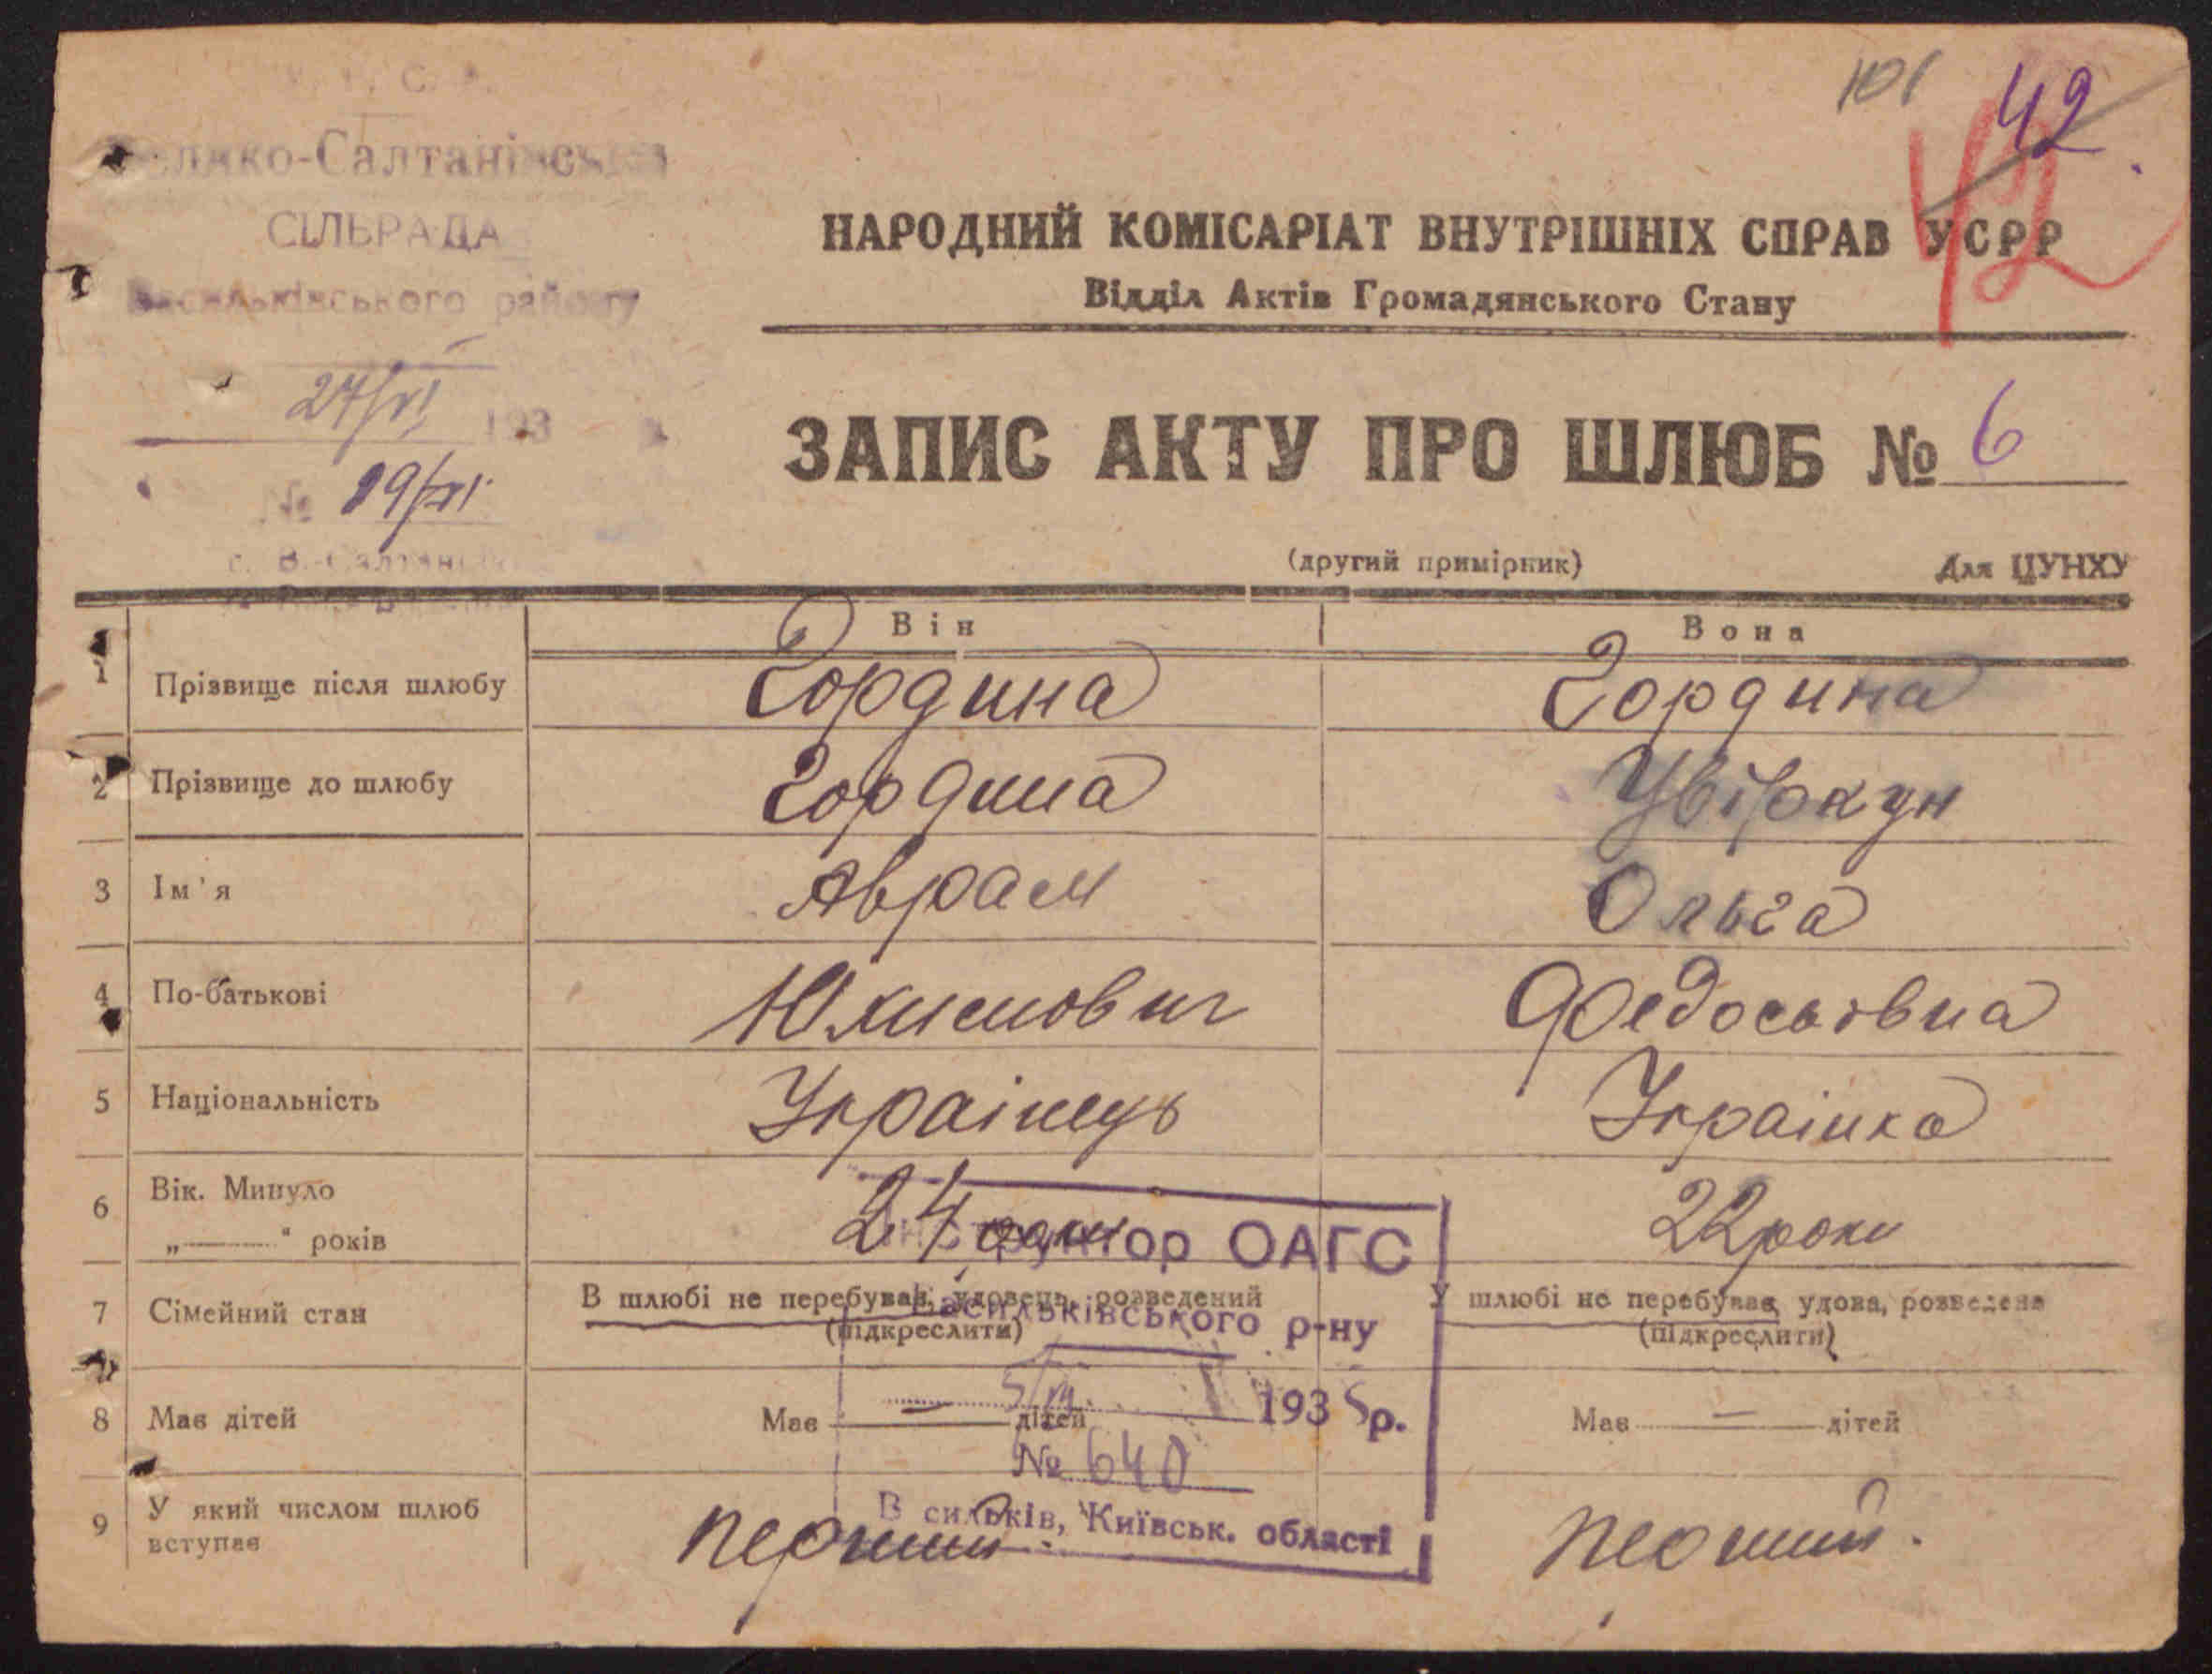 У. С. Р. Р.
Велико-Салтанівська
СІЛЬРАДА
Васильківського району
27/VI 193
№ 19/VI
с. В.-Салтанівка
101 42
42
НАРОДНИЙ КОМІСАРІАТ ВНУТРІШНІХ СПРАВ УСРР
Відділ Актів Громадянського Стану
ЗАПИС АКТУ ПРО ШЛЮБ № 6
(другий примірник) Для ЦУНХУ
Він Вона
1 Прізвище після шлюбу Гордина Гордина
2 Прізвище до шлюбу Гордина Цвіркун
3 Ім'я Аврам Ольга
4 По-батькові Юхимович Федосьовна
5 Національність Українець Українка
6 Вік. Минуло
„——“ років 24 роки 22 роки
7 Сімейний стан В шлюбі не перебував, удовець, розведений У шлюбі не перебувала, удова, розведена
(підкреслити) (підкреслити)
8 Має дітей Має — дітей Має — дітей
9 У який числом шлюб
вступає перший перший.
Інструктор ОАГС
Васильківського р-ну
1935 р.
№ 640
Васильків, Київськ. області